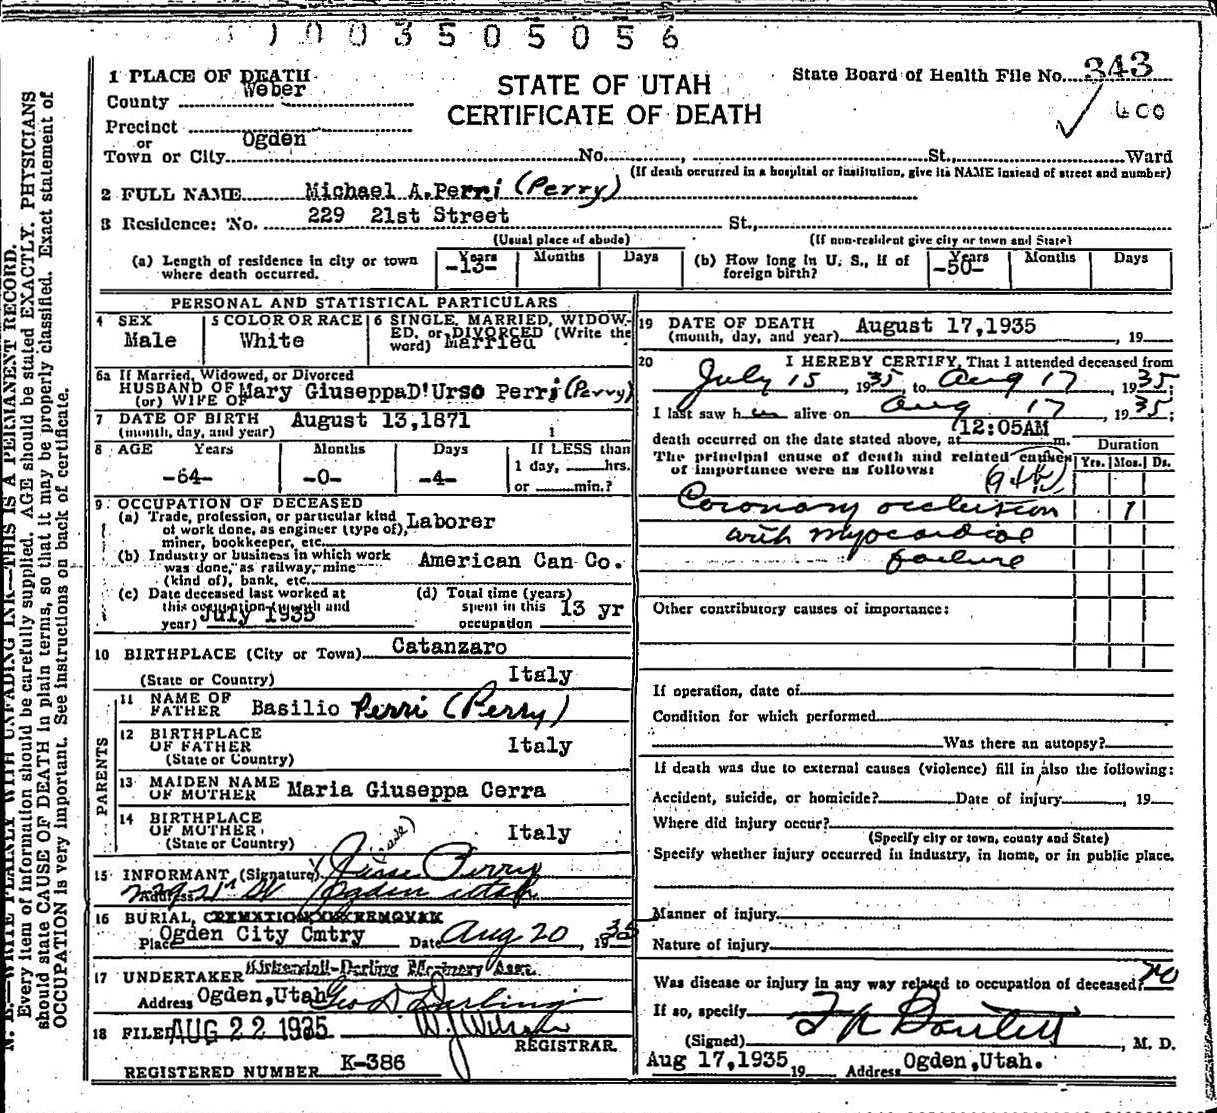 1003505056
1 PLACE OF DEATH
County Weber
Precinct
or
Town or City Ogden No. St., Ward
STATE OF UTAH
CERTIFICATE OF DEATH
State Board of Health File No. 343
600
(If death occurred in a hospital or institution, give its NAME instead of street and number)
2 FULL NAME Michael A. Perri (Perry)
3 Residence: No. 229 21st Street St.,
(Usual place of abode) (If non-resident give city or town and State)
(a) Length of residence in city or town where death occurred. Years -13- Months Days
(b) How long in U. S., if of foreign birth? Years -50- Months Days
PERSONAL AND STATISTICAL PARTICULARS
4 SEX Male
5 COLOR OR RACE White
6 SINGLE, MARRIED, WIDOWED, or DIVORCED (Write the word) Married
6a If Married, Widowed, or Divorced
HUSBAND OF
(or) WIFE OF Mary Giuseppa D'Urso Perri (Perry)
7 DATE OF BIRTH
(month, day, and year) August 13, 1871
8 AGE Years -64- Months -0- Days -4-
If LESS than
1 day, hrs.
or min.?
9 OCCUPATION OF DECEASED
(a) Trade, profession, or particular kind of work done, as engineer (type of), miner, bookkeeper, etc. Laborer
(b) Industry or business in which work was done, as railway, mine (kind of), bank, etc. American Can Co.
(c) Date deceased last worked at this occupation (month and year) July 1935
(d) Total time (years) spent in this occupation 13 yr
10 BIRTHPLACE (City or Town) Catanzaro
(State or Country) Italy
PARENTS
11 NAME OF FATHER Basilio Perri (Perry)
12 BIRTHPLACE OF FATHER
(State or Country) Italy
13 MAIDEN NAME OF MOTHER Maria Giuseppa Cerra
14 BIRTHPLACE OF MOTHER
(State or Country) Italy
15 INFORMANT (Signature) Jesse Perry
Address 229-21st St Ogden Utah
16 BURIAL, CREMATION OR REMOVAL
Place Ogden City Cmtry Date Aug 20, 1935
17 UNDERTAKER Kirkendall-Darling Mortuary Assn.
Address Ogden, Utah Geo D. Darling
18 FILED AUG 22 1935 W J Wilson
REGISTRAR.
REGISTERED NUMBER K-386
19 DATE OF DEATH
(month, day, and year) August 17, 1935, 19
20 I HEREBY CERTIFY, That I attended deceased from
July 15, 1935 to Aug 17, 1935;
I last saw him alive on Aug 17, 1935;
death occurred on the date stated above, at 12:05AM m.
The principal cause of death and related causes of importance were as follows:
Duration
Yrs. Mos. Ds.
Coronary occlusion 1
with myocardial
failure
Other contributory causes of importance:
If operation, date of
Condition for which performed
Was there an autopsy?
If death was due to external causes (violence) fill in also the following:
Accident, suicide, or homicide? Date of injury, 19
Where did injury occur?
(Specify city or town, county and State)
Specify whether injury occurred in industry, in home, or in public place.
Manner of injury
Nature of injury
Was disease or injury in any way related to occupation of deceased? no
If so, specify
(Signed) , M. D.
Aug 17, 1935 19 Address Ogden, Utah.
N. B.—WRITE PLAINLY WITH UNFADING INK—THIS IS A PERMANENT RECORD.
Every item of information should be carefully supplied. AGE should be stated EXACTLY. PHYSICIANS
should state CAUSE OF DEATH in plain terms, so that it may be properly classified. Exact statement of
OCCUPATION is very important. See instructions on back of certificate.